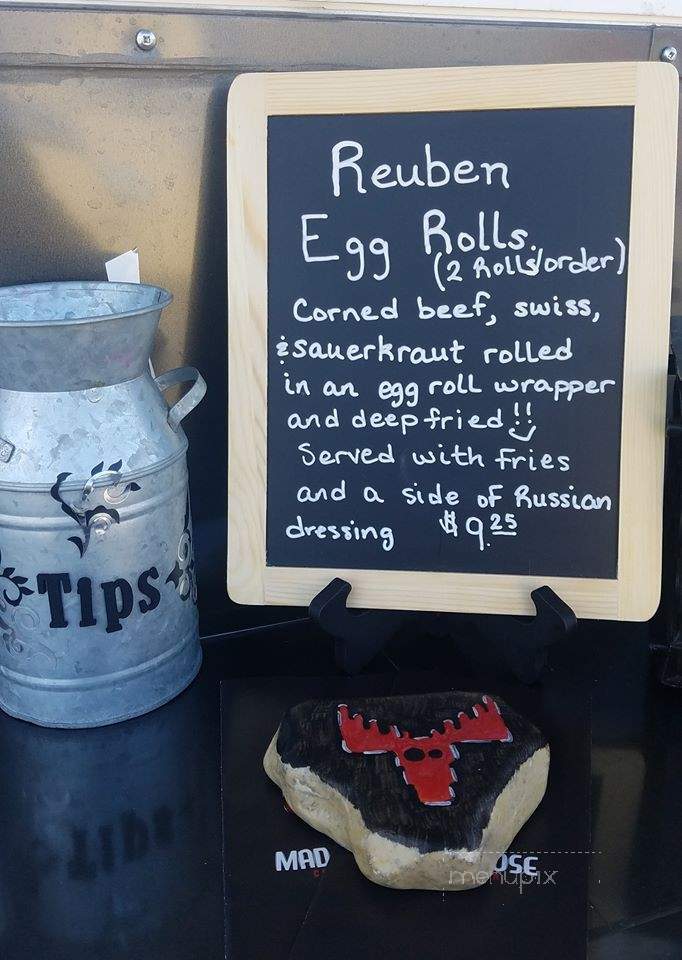 Reuben
Egg Rolls.
(2 Rolls/order)
Corned beef, swiss,
& sauerkraut rolled
in an egg roll wrapper
and deep fried!!
Served with fries
and a side of Russian
dressing $9.25
Tips
MAD
menupix